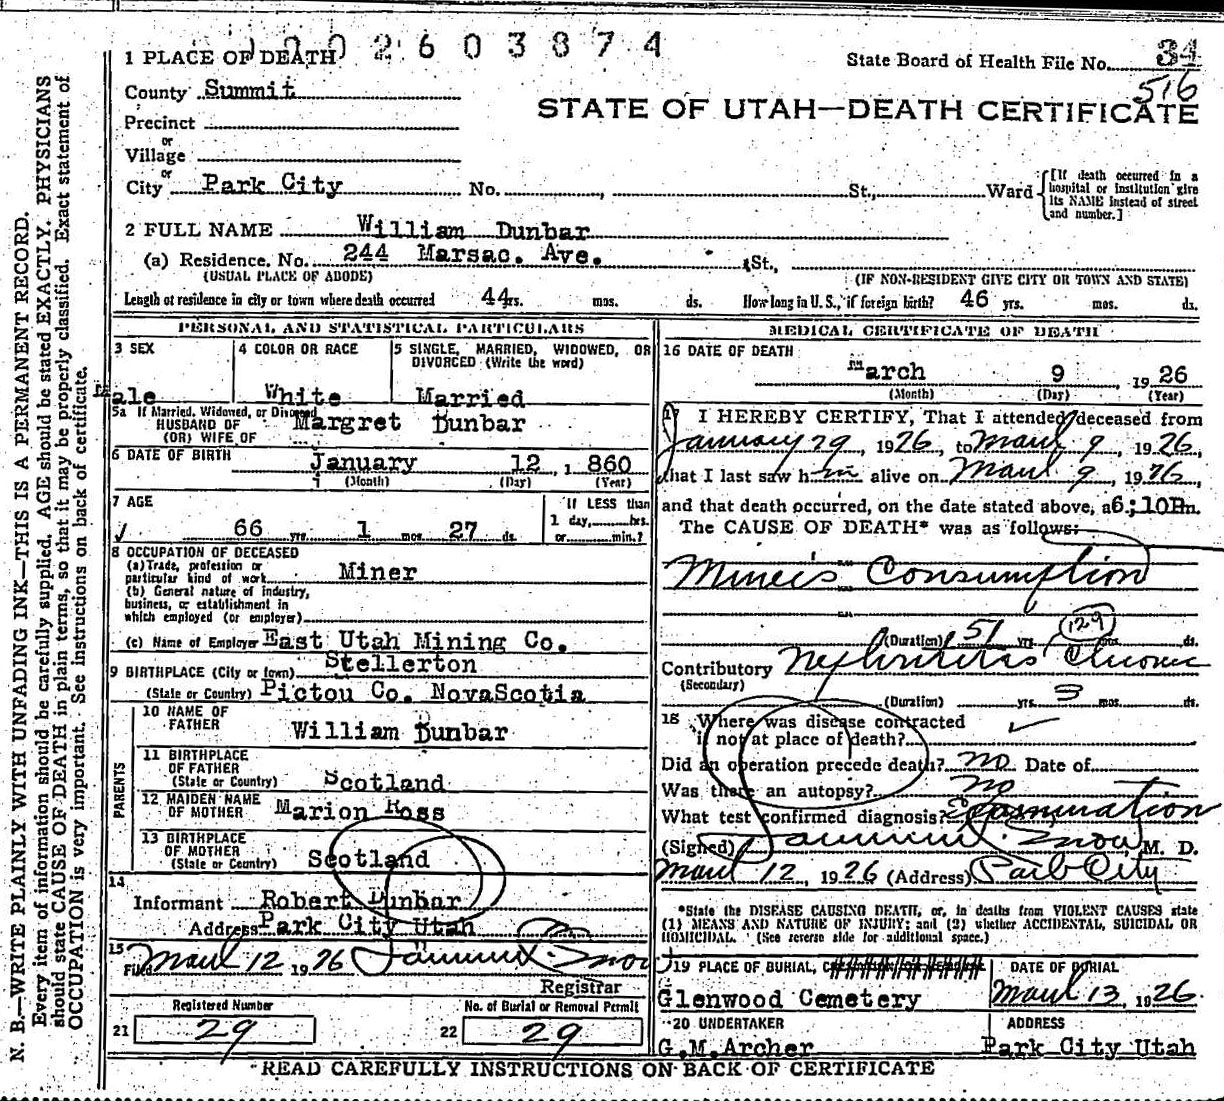 1 PLACE OF DEATH 2603874
State Board of Health File No. 34
516
County Summit
STATE OF UTAH—DEATH CERTIFICATE
Precinct
or
Village
or
City Park City No. , St., Ward
[If death occurred in a hospital or institution give its NAME instead of street and number.]
2 FULL NAME William Dunbar
(a) Residence. No. 244 Marsac. Ave. St.,
(USUAL PLACE OF ABODE) (IF NON-RESIDENT GIVE CITY OR TOWN AND STATE)
Length of residence in city or town where death occurred 44 yrs. mos. ds. How long in U. S., if foreign birth? 46 yrs. mos. ds.
PERSONAL AND STATISTICAL PARTICULARS
3 SEX
Male
4 COLOR OR RACE
White
5 SINGLE, MARRIED, WIDOWED, OR
DIVORCED (Write the word)
Married
5a If Married, Widowed, or Divorced
HUSBAND OF
(OR) WIFE OF
Margret Dunbar
6 DATE OF BIRTH January 12, 1860
(Month) (Day) (Year)
7 AGE
66 yrs. 1 mos. 27 ds.
If LESS than
1 day, hrs.
or min.?
8 OCCUPATION OF DECEASED
(a) Trade, profession or
particular kind of work Miner
(b) General nature of industry,
business, or establishment in
which employed (or employer)
(c) Name of Employer East Utah Mining Co.
9 BIRTHPLACE (City or town) Stellerton
(State or Country) Pictou Co. NovaScotia
PARENTS
10 NAME OF
FATHER William Dunbar
11 BIRTHPLACE
OF FATHER
(State or Country) Scotland
12 MAIDEN NAME
OF MOTHER Marion Ross
13 BIRTHPLACE
OF MOTHER
(State or Country) Scotland
14
Informant Robert Dunbar
Address Park City Utah
15
Filed March 12 1926
Registrar
Registered Number
21 29
No. of Burial or Removal Permit
22 29
MEDICAL CERTIFICATE OF DEATH
16 DATE OF DEATH
March 9, 1926
(Month) (Day) (Year)
17 I HEREBY CERTIFY, That I attended deceased from
January 29, 1926, to March 9, 1926,
that I last saw him alive on March 9, 1926,
and that death occurred, on the date stated above, at 6:10 Pm.
The CAUSE OF DEATH* was as follows:
Miner's Consumption
129
(Duration) yrs. mos. ds.
Contributory Nephrititis Chronic
(Secondary)
(Duration) yrs. 3 mos. ds.
18 Where was disease contracted
if not at place of death?
Did an operation precede death? no Date of
Was there an autopsy? no
What test confirmed diagnosis? Examination
(Signed) Snow, M. D.
March 12, 1926 (Address) Park City
*State the DISEASE CAUSING DEATH, or, in deaths from VIOLENT CAUSES state
(1) MEANS AND NATURE OF INJURY; and (2) whether ACCIDENTAL, SUICIDAL OR
HOMICIDAL. (See reverse side for additional space.)
19 PLACE OF BURIAL,
Glenwood Cemetery
DATE OF BURIAL
March 13, 1926
20 UNDERTAKER
G.M.Archer
ADDRESS
Park City Utah
READ CAREFULLY INSTRUCTIONS ON BACK OF CERTIFICATE
N. B.—WRITE PLAINLY WITH UNFADING INK—THIS IS A PERMANENT RECORD.
Every item of information should be carefully supplied. AGE should be stated EXACTLY. PHYSICIANS
should state CAUSE OF DEATH in plain terms, so that it may be properly classified. Exact statement of
OCCUPATION is very important. See instructions on back of certificate.